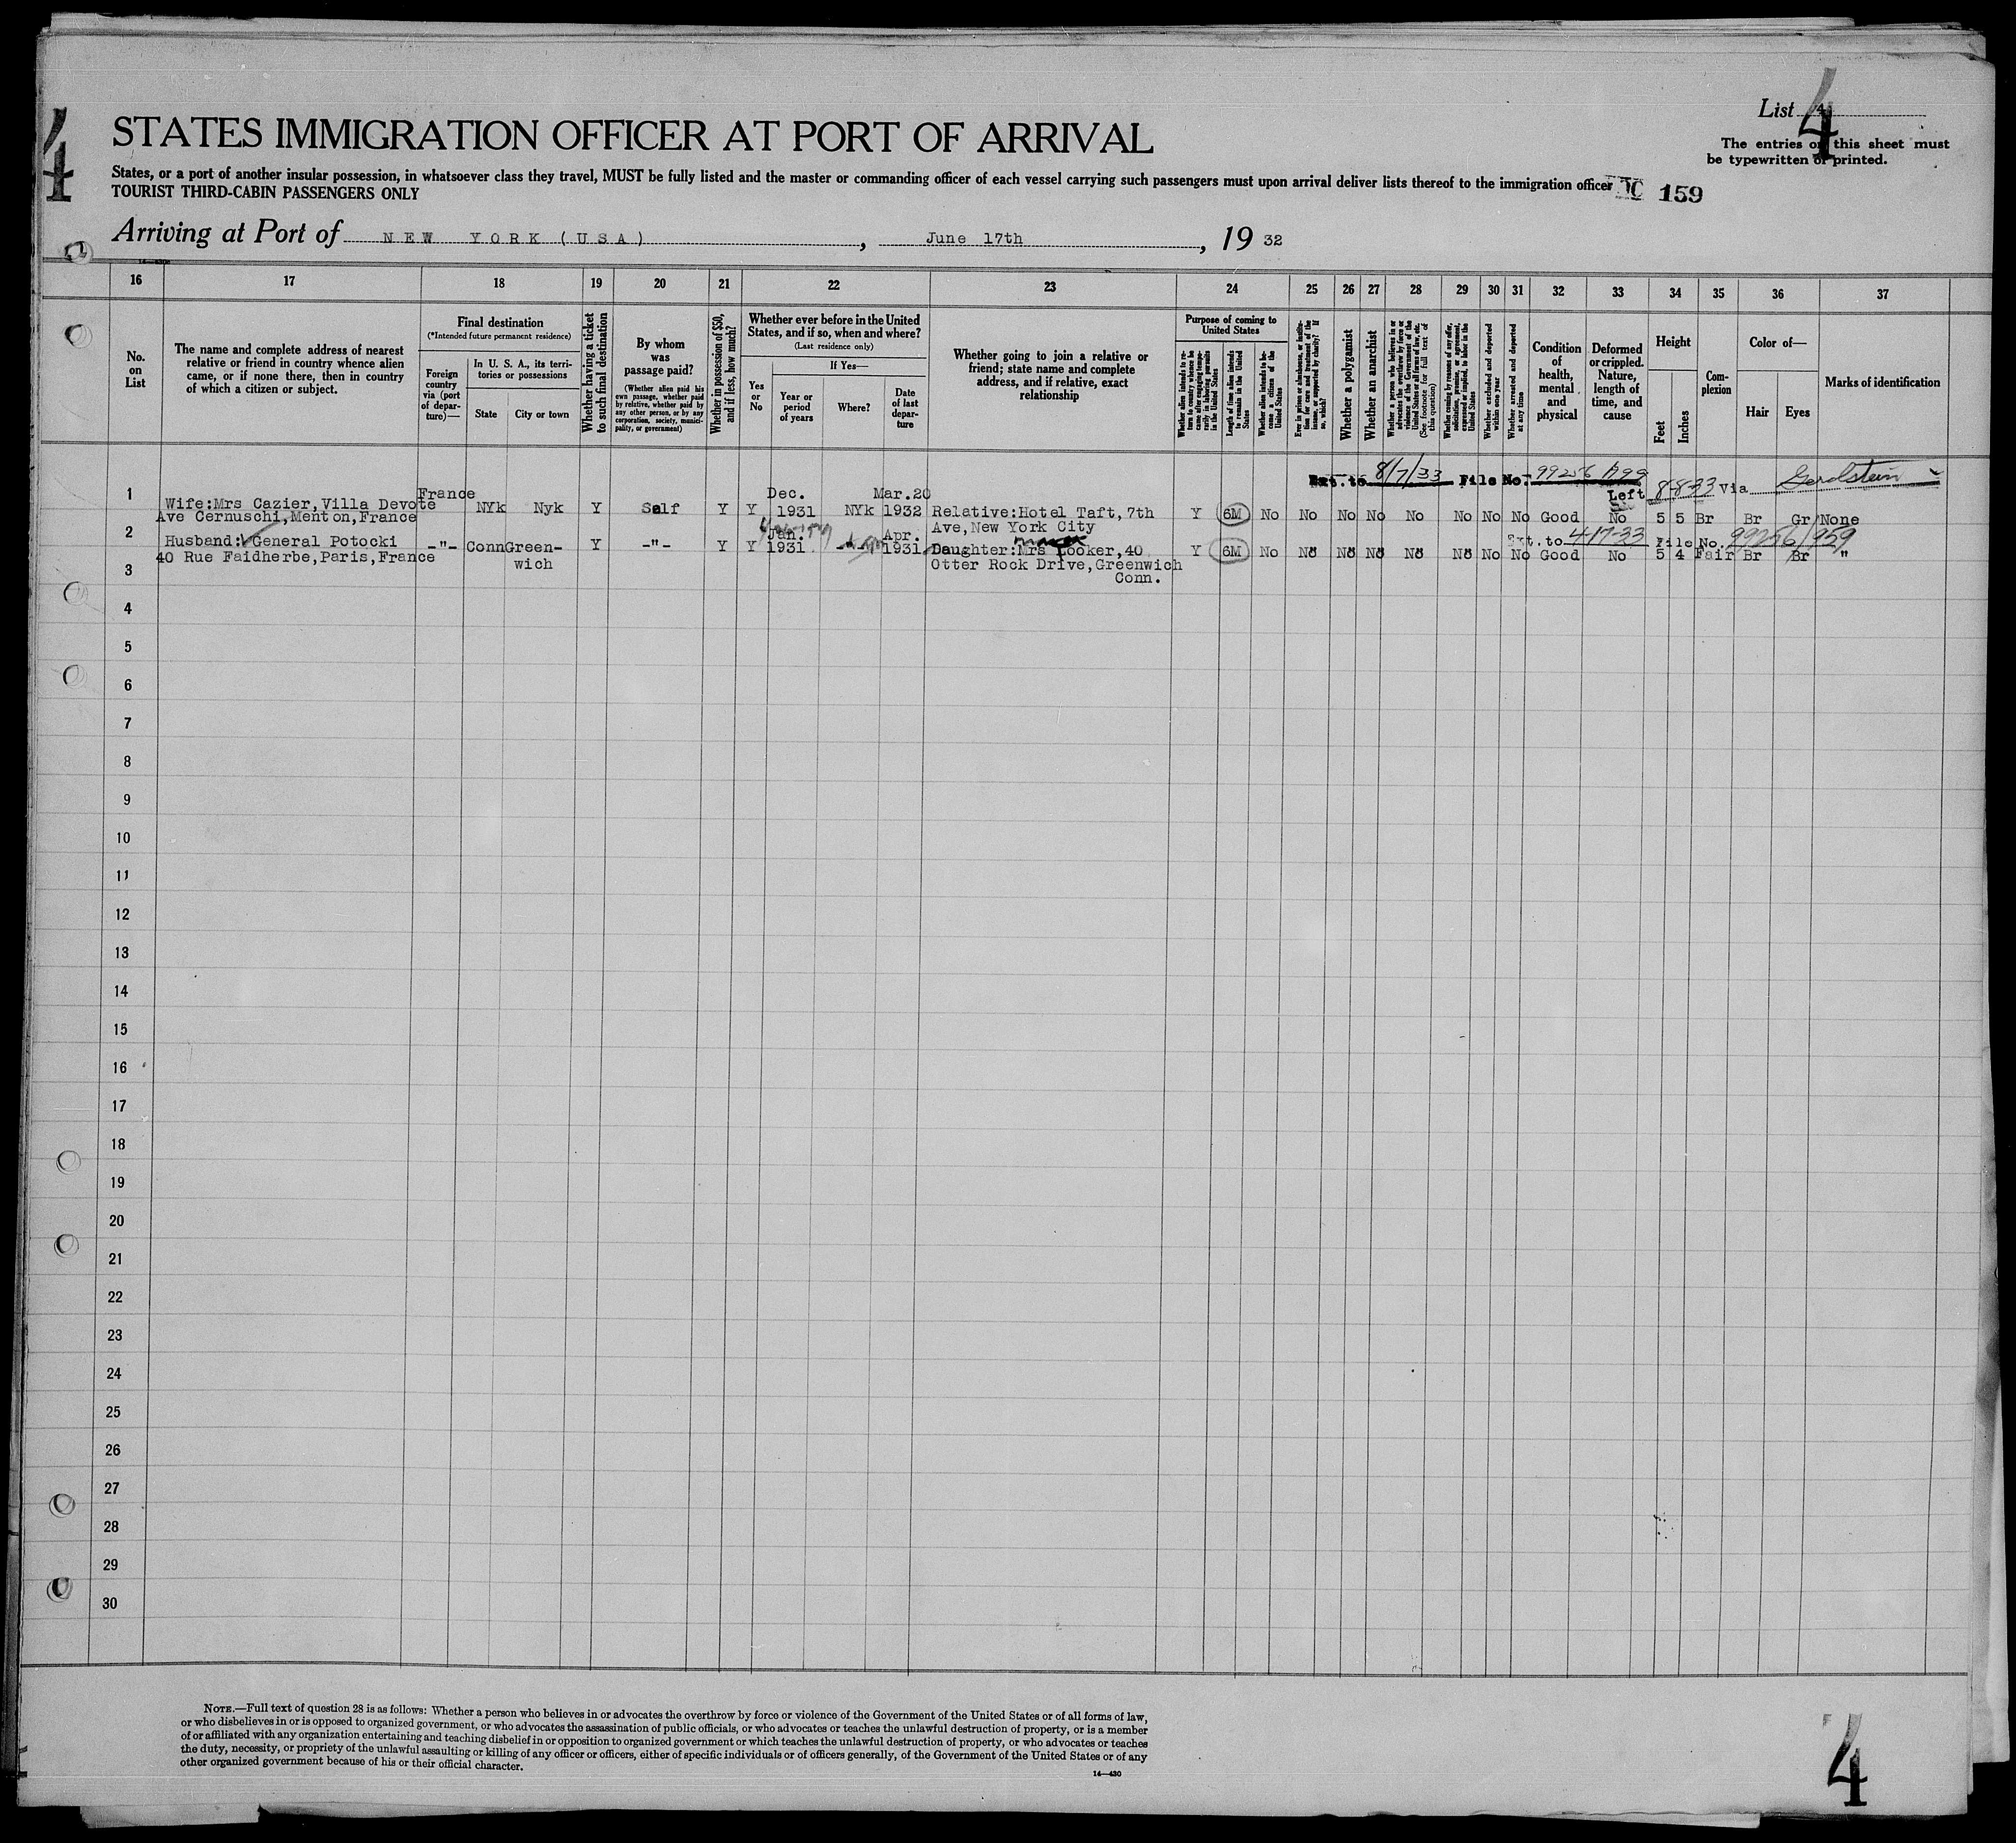 4
4
List 4
STATES IMMIGRATION OFFICER AT PORT OF ARRIVAL
The entries on this sheet must
be typewritten or printed.
States, or a port of another insular possession, in whatsoever class they travel, MUST be fully listed and the master or commanding officer of each vessel carrying such passengers must upon arrival deliver lists thereof to the immigration officer
TOURIST THIRD-CABIN PASSENGERS ONLY
159
Arriving at Port of NEW YORK (USA), June 17th, 19 32
16 17 18 19 20 21 22 23 24 25 26 27 28 29 30 31 32 33 34 35 36 37
No. on List
The name and complete address of nearest
relative or friend in country whence alien
came, or if none there, then in country
of which a citizen or subject.
Final destination
(*Intended future permanent residence)
Foreign country via (port of departure)—
In U. S. A., its territories or possessions
State
City or town
Whether having a ticket to such final destination
By whom was passage paid?
(Whether alien paid his own passage, whether paid by relative, whether paid by any other person, or by any corporation, society, municipality, or government)
Whether in possession of $50, and if less, how much?
Whether ever before in the United States, and if so, when and where?
(Last residence only)
Yes or No
If Yes—
Year or period of years
Where?
Date of last departure
Whether going to join a relative or
friend; state name and complete
address, and if relative, exact
relationship
Purpose of coming to United States
Whether alien intends to return to country whence he came after engaging temporarily in laboring pursuits in the United States
Length of time alien intends to remain in the United States
Whether alien intends to become a citizen of the United States
Ever in prison or almshouse, or institution for care and treatment of the insane, or supported by charity? If so, which?
Whether a polygamist
Whether an anarchist
Whether a person who believes in or advocates the overthrow by force or violence of the Government of the United States or all forms of law, etc. (See footnote for full text of this question)
Whether coming by reasons of any offer, solicitation, promise, or agreement, expressed or implied, to labor in the United States
Whether excluded and deported within one year
Whether arrested and deported at any time
Condition of health, mental and physical
Deformed or crippled. Nature, length of time, and cause
Height
Feet
Inches
Complexion
Color of—
Hair
Eyes
Marks of identification
Ext. to 8/7/33 File No. 99256/799
Left 8-8-33 Via
1 Wife:Mrs Cazier,Villa Devote France NYk Nyk Y Self Y Y Dec. 1931 NYk Mar.20 1932 Relative:Hotel Taft,7th Y 6M No No No No No No No No Good No 5 5 Br Br Gr None
Ave Cernuschi,Menton,France
Ave,New York City
Ext. to 4-17-33 File No. 99256/959
2 Husband: General Potocki -"- Conn Green- Y -"- Y Y Jan. 1931 Apr. 1931 Daughter:Mrs Looker,40 Y 6M No No No No No No No No Good No 5 4 Fair Br Br "
40 Rue Faidherbe,Paris,France wich Otter Rock Drive,Greenwich
Conn.
3
4
5
6
7
8
9
10
11
12
13
14
15
16
17
18
19
20
21
22
23
24
25
26
27
28
29
30
NOTE.—Full text of question 28 is as follows: Whether a person who believes in or advocates the overthrow by force or violence of the Government of the United States or of all forms of law,
or who disbelieves in or is opposed to organized government, or who advocates the assassination of public officials, or who advocates or teaches the unlawful destruction of property, or is a member
of or affiliated with any organization entertaining and teaching disbelief in or opposition to organized government or which teaches the unlawful destruction of property, or who advocates or teaches
the duty, necessity, or propriety of the unlawful assaulting or killing of any officer or officers, either of specific individuals or of officers generally, of the Government of the United States or of any
other organized government because of his or their official character.
14—430
4